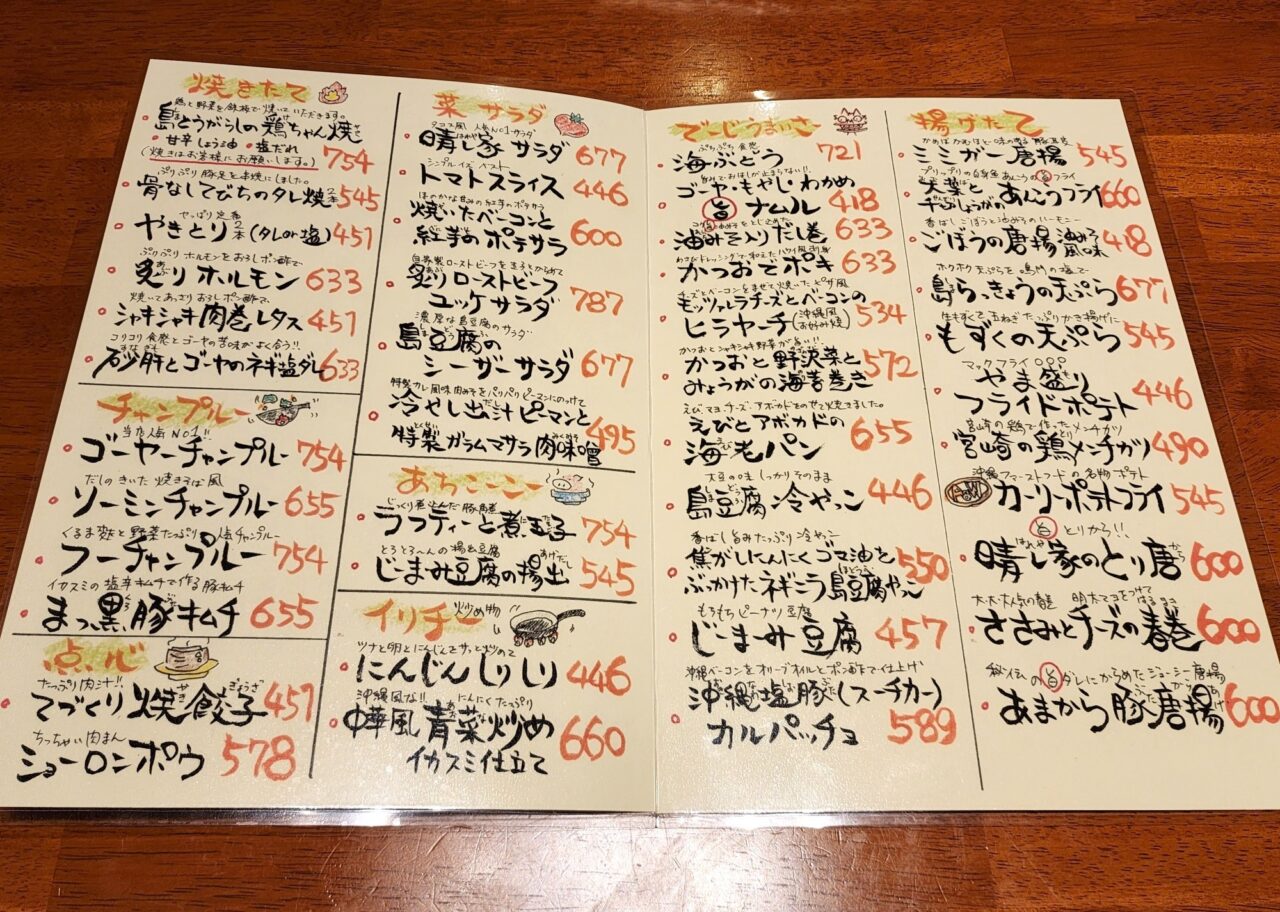 焼きたて
鶏と野菜を鉄板で焼いていただきます。
島とうがらしの鶏ちゃん焼
・甘辛しょうゆ ・塩だれ
(焼きはお客様にお願いします。) 754
ぷりぷり豚足を串焼にしました。
骨なしてびちのタレ焼 2本 545
やっぱり定番
やきとり 2本 (タレor塩) 457
ぷりぷりホルモンをおろしポン酢で
炙りホルモン 633
焼いてあっさりおろしポン酢で、
シャキシャキ肉巻レタス 457
コリコリ食感とゴーヤの苦味がよく合う!!
砂肝とゴーヤのネギ塩ダレ 633
チャンプルー
当店人気NO1!!
ゴーヤーチャンプルー 754
だしのきいた焼きそば風
ソーミンチャンプルー 655
くるま麩と野菜たっぷり 人気チャンプルー
フーチャンプルー 754
イカスミの塩辛キムチで作る豚キムチ
まっ黒豚キムチ 655
点心
たっぷり肉汁!!
てづくり焼餃子 457
ちっちゃい肉まん
ショーロンポウ 578
菜サラダ
タコス風 人気No1サラダ
晴れ家サラダ 677
シンプルイズベスト
トマトスライス 446
ほのかな甘みの紅芋のポテサラ
焼いたベーコンと
紅芋のポテサラ 600
自家製ローストビーフを玉子とからめて
炙りローストビーフ
ユッケサラダ 787
濃厚な島豆腐のサラダ
島豆腐の
シーザーサラダ 677
特製カレー風味肉みそをパリパリピーマンにのっけて
冷やし出汁ピーマンと
特製ガラムマサラ肉味噌 495
あちこーこー
じっくり煮込んだ豚角煮
ラフティーと煮玉子 754
とろとろ〜んの揚出豆腐
じーまみ豆腐の揚出 545
イリチー 炒め物
ツナと卵とにんじんをサッと炒めて
にんじんしりしり 446
沖縄風な!! にんにくたっぷり
中華風青菜炒め
イカスミ仕立て 660
でーじうまいさ
ぷちぷち食感
海ぶどう 721
旨みでおはしが止まらない!!
ゴーヤ・もやし・わかめ
旨ナムル 418
油みそ入りだし巻 633
わさびドレッシングで和えたハワイ風刺身
かつおでポキ 633
チーズとベーコンをまぜて焼いたピザ風
モッツァレラチーズとベーコンの
ヒラヤーチ (沖縄風お好み焼) 534
かつおとシャキシャキ野菜が旨い!!
かつおと野沢菜と
みょうがの海苔巻き 572
えび・マヨ・チーズ・アボカドをのせて焼きました。
えびとアボカドの
海老パン 655
大豆の味しっかりそのまま
島豆腐冷やっこ 446
香ばし旨みたっぷり冷やっこ
焦がしにんにくゴマ油を
ぶっかけたネギニラ島豆腐やっこ 550
もちもちピーナツ豆腐
じーまみ豆腐 457
沖縄ベーコンをオリーブオイルとポン酢で仕上げ
沖縄塩豚(スーチカー)
カルパッチョ 589
揚げたて
かめばかむほど味の出る豚耳皮
ミミガー唐揚 545
プリップリの白身魚あんこうの旨フライ
大葉と
干ぶどうがのあんこうフライ 660
香ばしごぼうと油みそのハーモニー
ごぼうの唐揚油みそ風味 418
ホクホク天ぷらを鳴門の塩で
島らっきょうの天ぷら 677
生もずくで玉ねぎたっぷりかき揚げに
もずくの天ぷら 545
マックフライ○○○
やま盛り
フライドポテト 446
宮崎の鶏で作ったメンチカツ
宮崎の鶏メンチカツ 490
沖縄ファーストフードの名物ポテト
カーリーポテトフライ 545
旨とりから!!
晴れ家のとり唐 600
大大大人気の春巻 明太マヨをつけて
ささみとチーズの春巻 600
秘伝の旨ダレにからめたジューシー唐揚
あまから豚唐揚 600